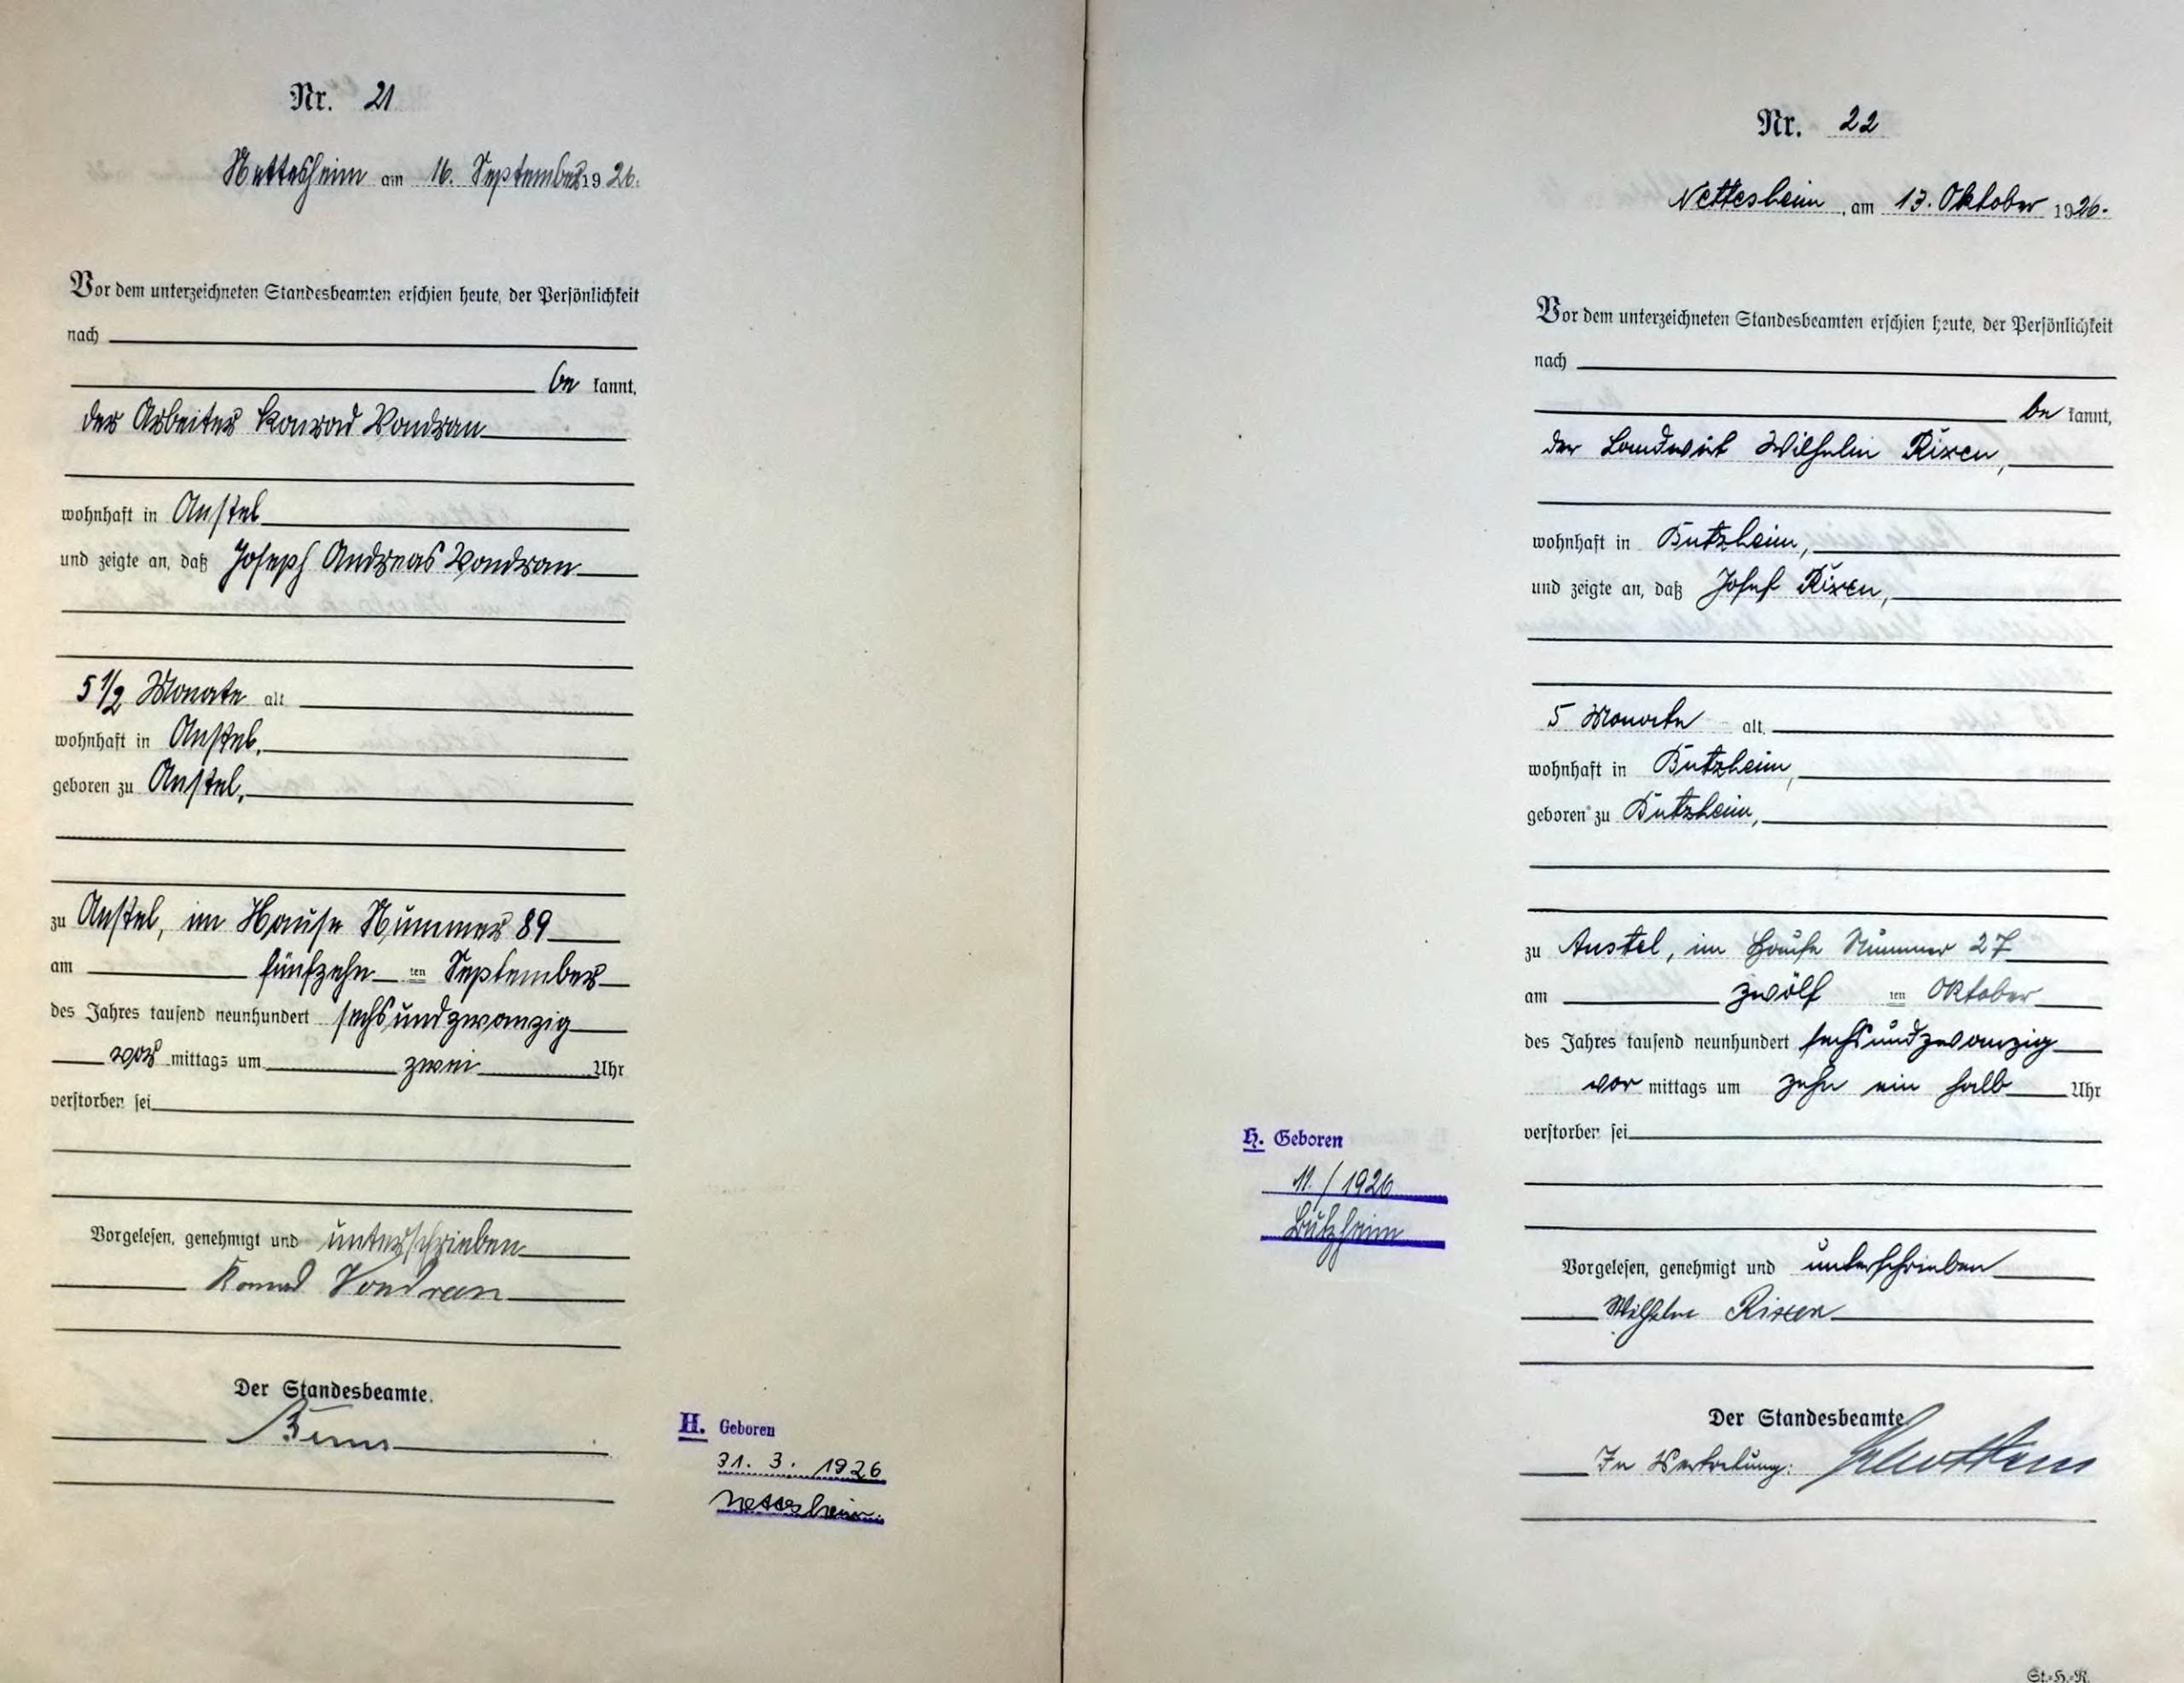 Nr. 21
Nettesheim am 16. September 1926.
Vor dem unterzeichneten Standesbeamten erschien heute, der Persönlichkeit
nach
be kannt,
der Arbeiter Konrad Vondran
wohnhaft in Anstel
und zeigte an, daß Joseph Andreas Vondran
5 1/2 Monate alt
wohnhaft in Anstel,
geboren zu Anstel,
zu Anstel, im Hause Nummer 89
am fünfzehn ten September
des Jahres tausend neunhundert sechsundzwanzig
vor mittags um zwei Uhr
verstorben sei
Vorgelesen, genehmigt und unterschrieben
Konrad Vondran
Der Standesbeamte.
H. Geboren
31. 3. 1926
Nettesheim.
Nr. 22
Nettesheim, am 13. Oktober 1926.
Vor dem unterzeichneten Standesbeamten erschien heute, der Persönlichkeit
nach
be kannt,
der Landwirt Wilhelm Rixen,
wohnhaft in Butzheim,
und zeigte an, daß Josef Rixen,
5 Monate alt,
wohnhaft in Butzheim,
geboren zu Butzheim,
zu Anstel, im Hause Nummer 27
am zwölf ten Oktober
des Jahres tausend neunhundert sechsundzwanzig
vor mittags um zehn ein halb Uhr
verstorben sei
H. Geboren
11./1926
Butzheim
Vorgelesen, genehmigt und unterschrieben
Wilhelm Rixen
Der Standesbeamte
In Vertretung:
St.=H.=R.